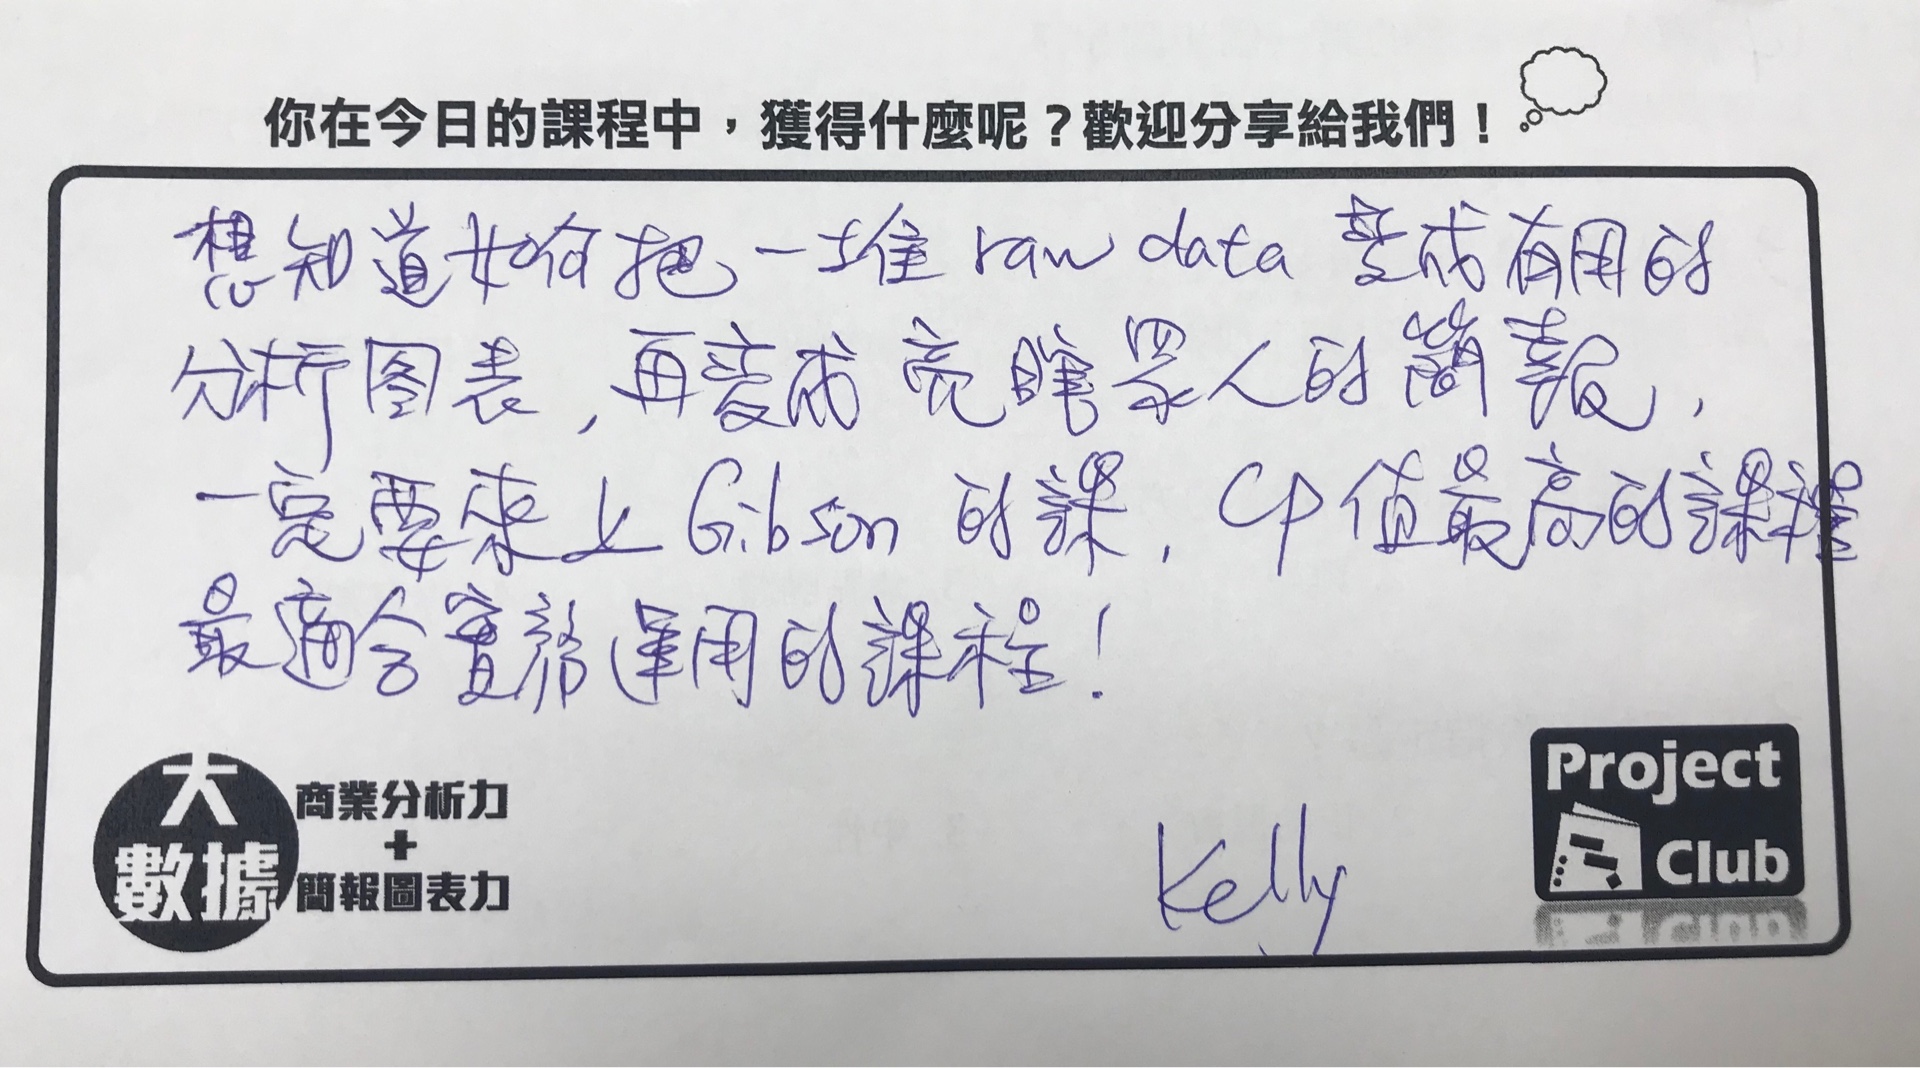 你在今日的課程中，獲得什麼呢？歡迎分享給我們！
想知道如何把一堆 raw data 變成有用的
分析图表，再變成亮瞎眾人的簡報，
一定要來上 Gibson 的課，CP值最高的課程
最適合實務運用的課程！
Kelly
大數據
商業分析力
+
簡報圖表力
Project
Club